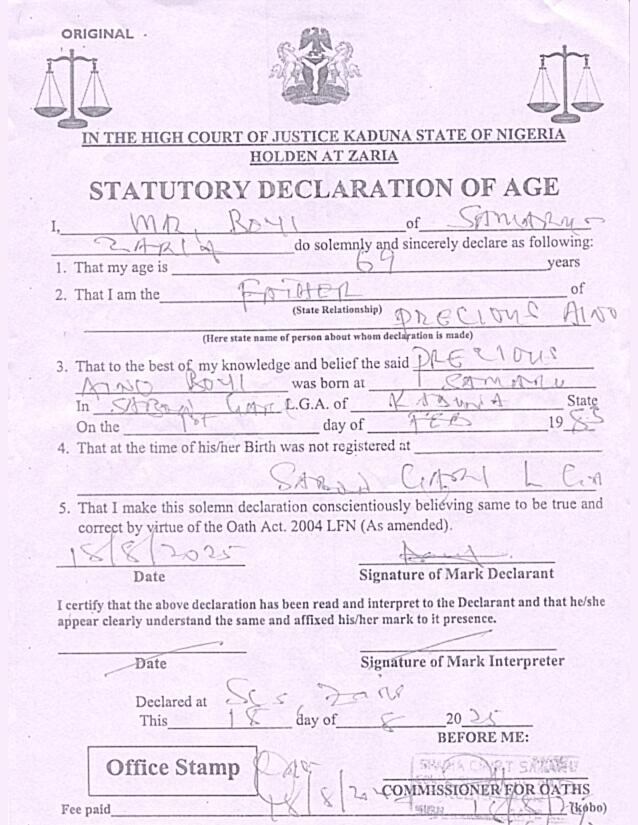 ORIGINAL
IN THE HIGH COURT OF JUSTICE KADUNA STATE OF NIGERIA
HOLDEN AT ZARIA
STATUTORY DECLARATION OF AGE
I, MR, BOYI of SAMARU
ZARIA do solemnly and sincerely declare as following:
1. That my age is 69 years
2. That I am the FATHER of
(State Relationship) PRECIOUS AINO
(Here state name of person about whom declaration is made)
3. That to the best of my knowledge and belief the said PRECIOUS
AINO BOYI was born at SAMARU
In SABON GARI L.G.A. of KADUNA State
On the 1st day of FEB 1983
4. That at the time of his/her Birth was not registered at
SABON GARI L G A
5. That I make this solemn declaration conscientiously believing same to be true and
correct by virtue of the Oath Act. 2004 LFN (As amended).
18/8/2025
Date Signature of Mark Declarant
I certify that the above declaration has been read and interpret to the Declarant and that he/she
appear clearly understand the same and affixed his/her mark to it presence.
Date Signature of Mark Interpreter
Declared at
This 18 day of 8 2025
BEFORE ME:
Office Stamp
COMMISSIONER FOR OATHS
Fee paid (kobo)